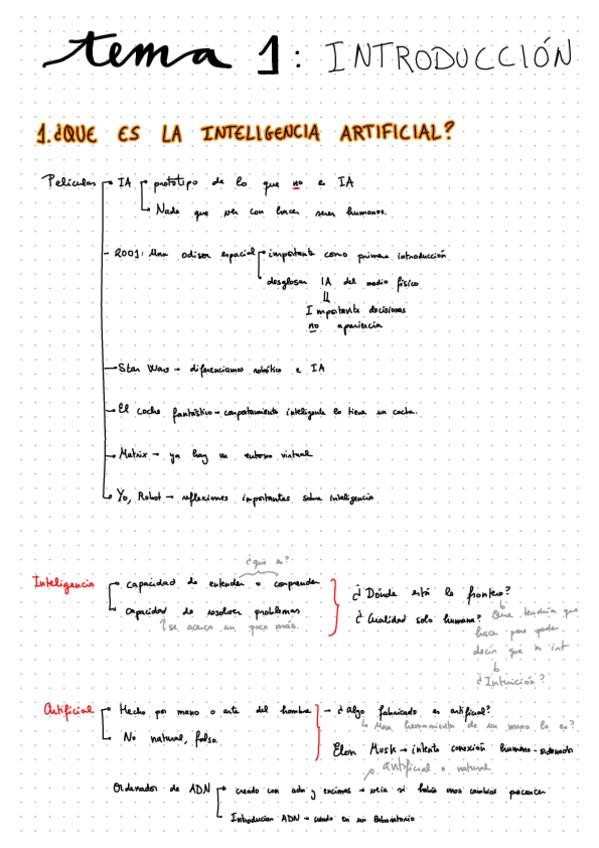 tema 1: INTRODUCCIÓN
1. ¿QUE ES LA INTELIGENCIA ARTIFICIAL?
Películas IA prototipo de lo que no e IA
Nada que ver con hacer seres humanos.
2001: Una odisea espacial importante como primera introducción
desglosar IA del medio físico
Importante decisiones
no apariencia
Star Wars → diferenciamos robótica e IA
El coche fantástico → comportamiento inteligente lo tiene un coche.
Matrix → ya hay un entorno virtual
Yo, Robot → reflexiones importantes sobre inteligencia
¿qué es?
Inteligencia capacidad de entender o comprender
capacidad de resolver problemas
se acerca un poco más.
¿Dónde está la frontera?
¿Cualidad solo humana? Que tendría que
hacer para poder
decir que es int
¿Intuición?
Artificial Hecho por mano o arte del hombre → ¿algo fabricado es artificial?
No natural, falso.
Una herramienta de un mono lo es?
Elon Musk → intenta conexión humano-
artificial o natural
Ordenador de ADN creado con adn y encimas →
Introducían ADN → creado en un laboratorio